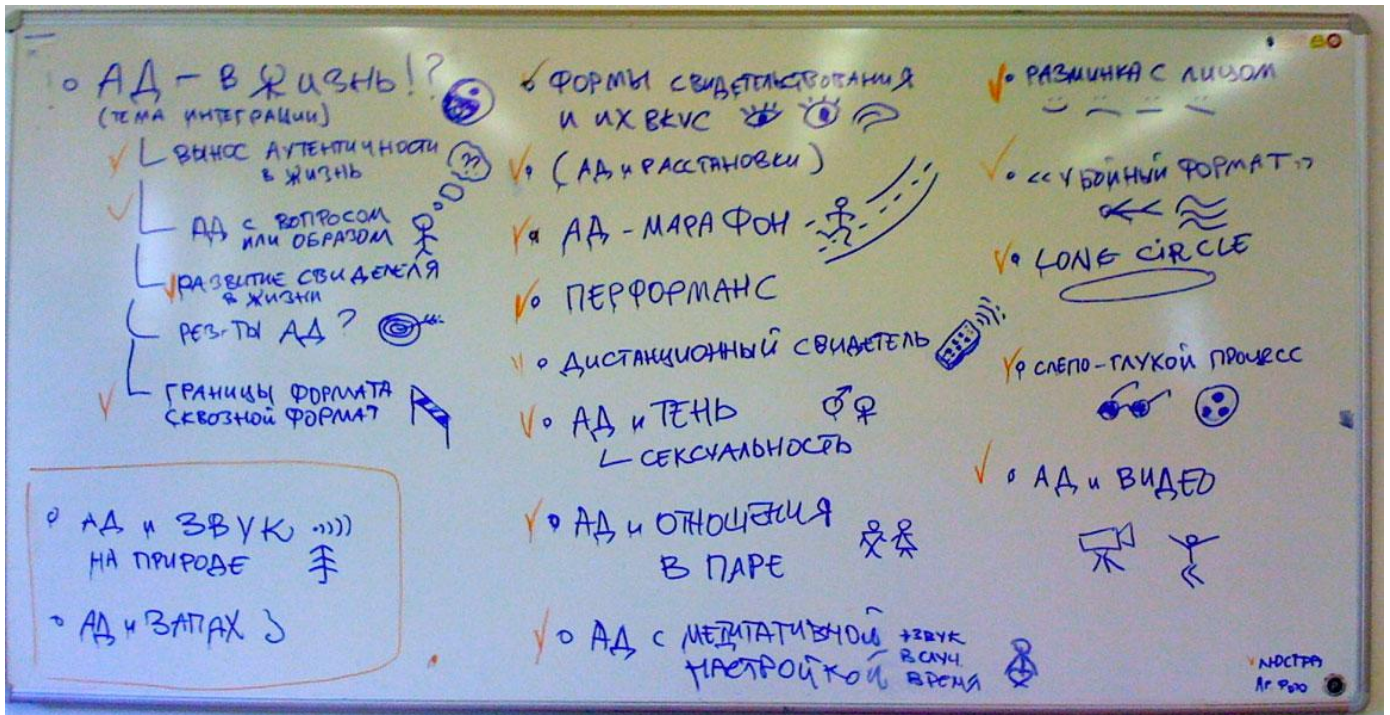 АД – В ЖИЗНЬ!?
(ТЕМА ИНТЕГРАЦИИ)
ВЫНОС АУТЕНТИЧНОСТИ
В ЖИЗНЬ
??
АД С ВОПРОСОМ
ИЛИ ОБРАЗОМ
РАЗВИТИЕ СВИДЕТЕЛЯ
В ЖИЗНИ
РЕЗ-ТЫ АД?
ГРАНИЦЫ ФОРМАТА
СКВОЗНОЙ ФОРМАТ
АД И ЗВУК
НА ПРИРОДЕ
АД И ЗАПАХ
ФОРМЫ СВИДЕТЕЛЬСТВОВАНИЯ
И ИХ ВКУС
(АД И РАССТАНОВКИ)
АД – МАРАФОН
ПЕРФОРМАНС
ДИСТАНЦИОННЫЙ СВИДЕТЕЛЬ
АД И ТЕНЬ
СЕКСУАЛЬНОСТЬ
АД И ОТНОШЕНИЯ
В ПАРЕ
АД С МЕДИТАТИВНОЙ
НАСТРОЙКОЙ
+ЗВУК
В СЛУЧ.
ВРЕМЯ
РАЗМИНКА С ЛИЦОМ
«УБОЙНЫЙ ФОРМАТ»
LONG CIRCLE
СЛЕПО-ГЛУХОЙ ПРОЦЕСС
АД И ВИДЕО
ЛЮСТРА